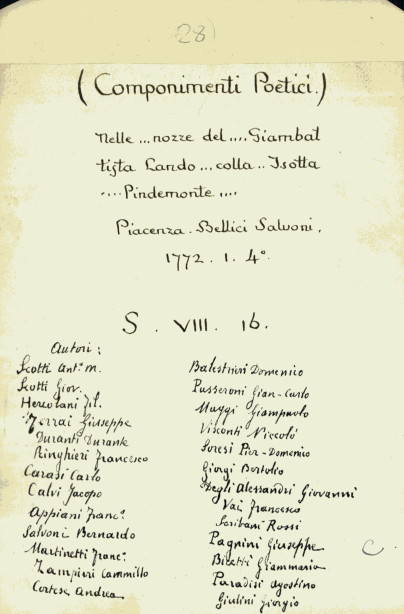 28)
(Componimenti Poetici.)
Nelle ... nozze del .... Giambat
tista Lando ... colla .. Isotta
.... Pindemonte ....
Piacenza. Bellici Salvoni,
1772. 1. 4°.
S. VIII. 16.
Autori:
Scotti Ant. m.
Scotti Giov.
Hercolani Fil.
Ferrai Giuseppe
Duranti Durante
Ringhieri Francesco
Carasi Carlo
Calvi Jacopo
Appiani Franc.°
Salvoni Bernardo
Martinetti Franc.°
Zampieri Cammillo
Cortese Andrea
Balestrieri Domenico
Passeroni Gian-Carlo
Maggi Giampaolo
Visconti Niccolò
Soresi Pier-Domenico
Giorgi Bertolio
Degli Alessandri Giovanni
Vai Francesco
Scribani Rossi
Pagnini Giuseppe
Bicetti Giammaria
Paradisi Agostino
Giulini Giorgio
C